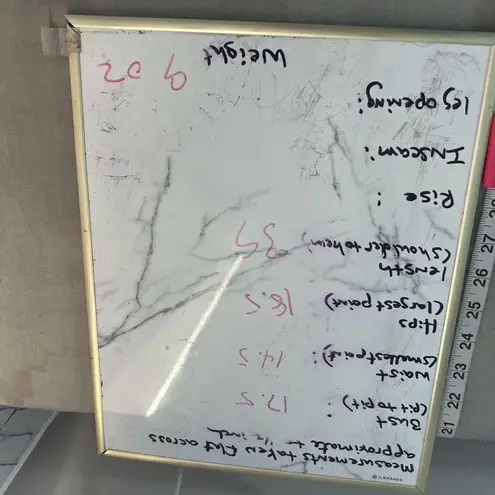 Measurements taken flat across
approximate + 1/2 inch
Bust
(Pit to Pit) : 17.5
Waist
(smallest point) : 14.5
Hips
(largest point) 18.5
length
(shoulder to hem)
Rise :
Inseam :
leg opening :
Weight
9 oz
21 22 23 24 25 26 27